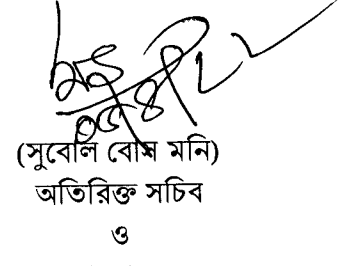 (সুবোল বোস মনি)
অতিরিক্ত সচিব
ও